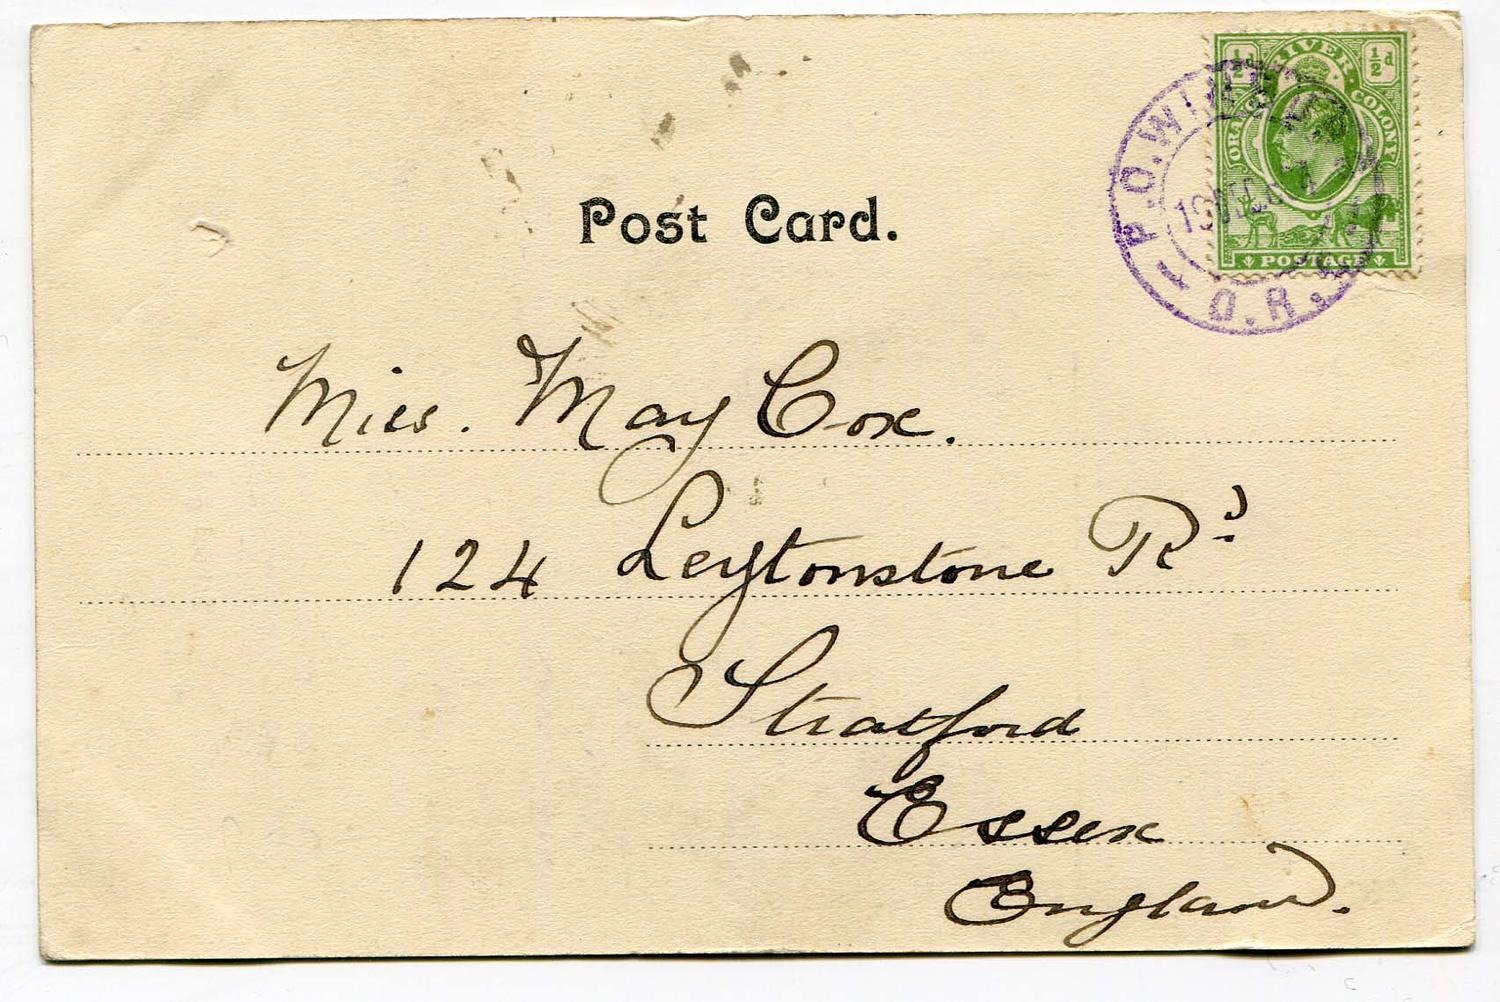 ½d
½d
ORANGE RIVER COLONY
POSTAGE
P.O.
O.R.
Post Card.
Miss. May Cox.
124 Leytonstone Rd
Stratford
Essex
England.